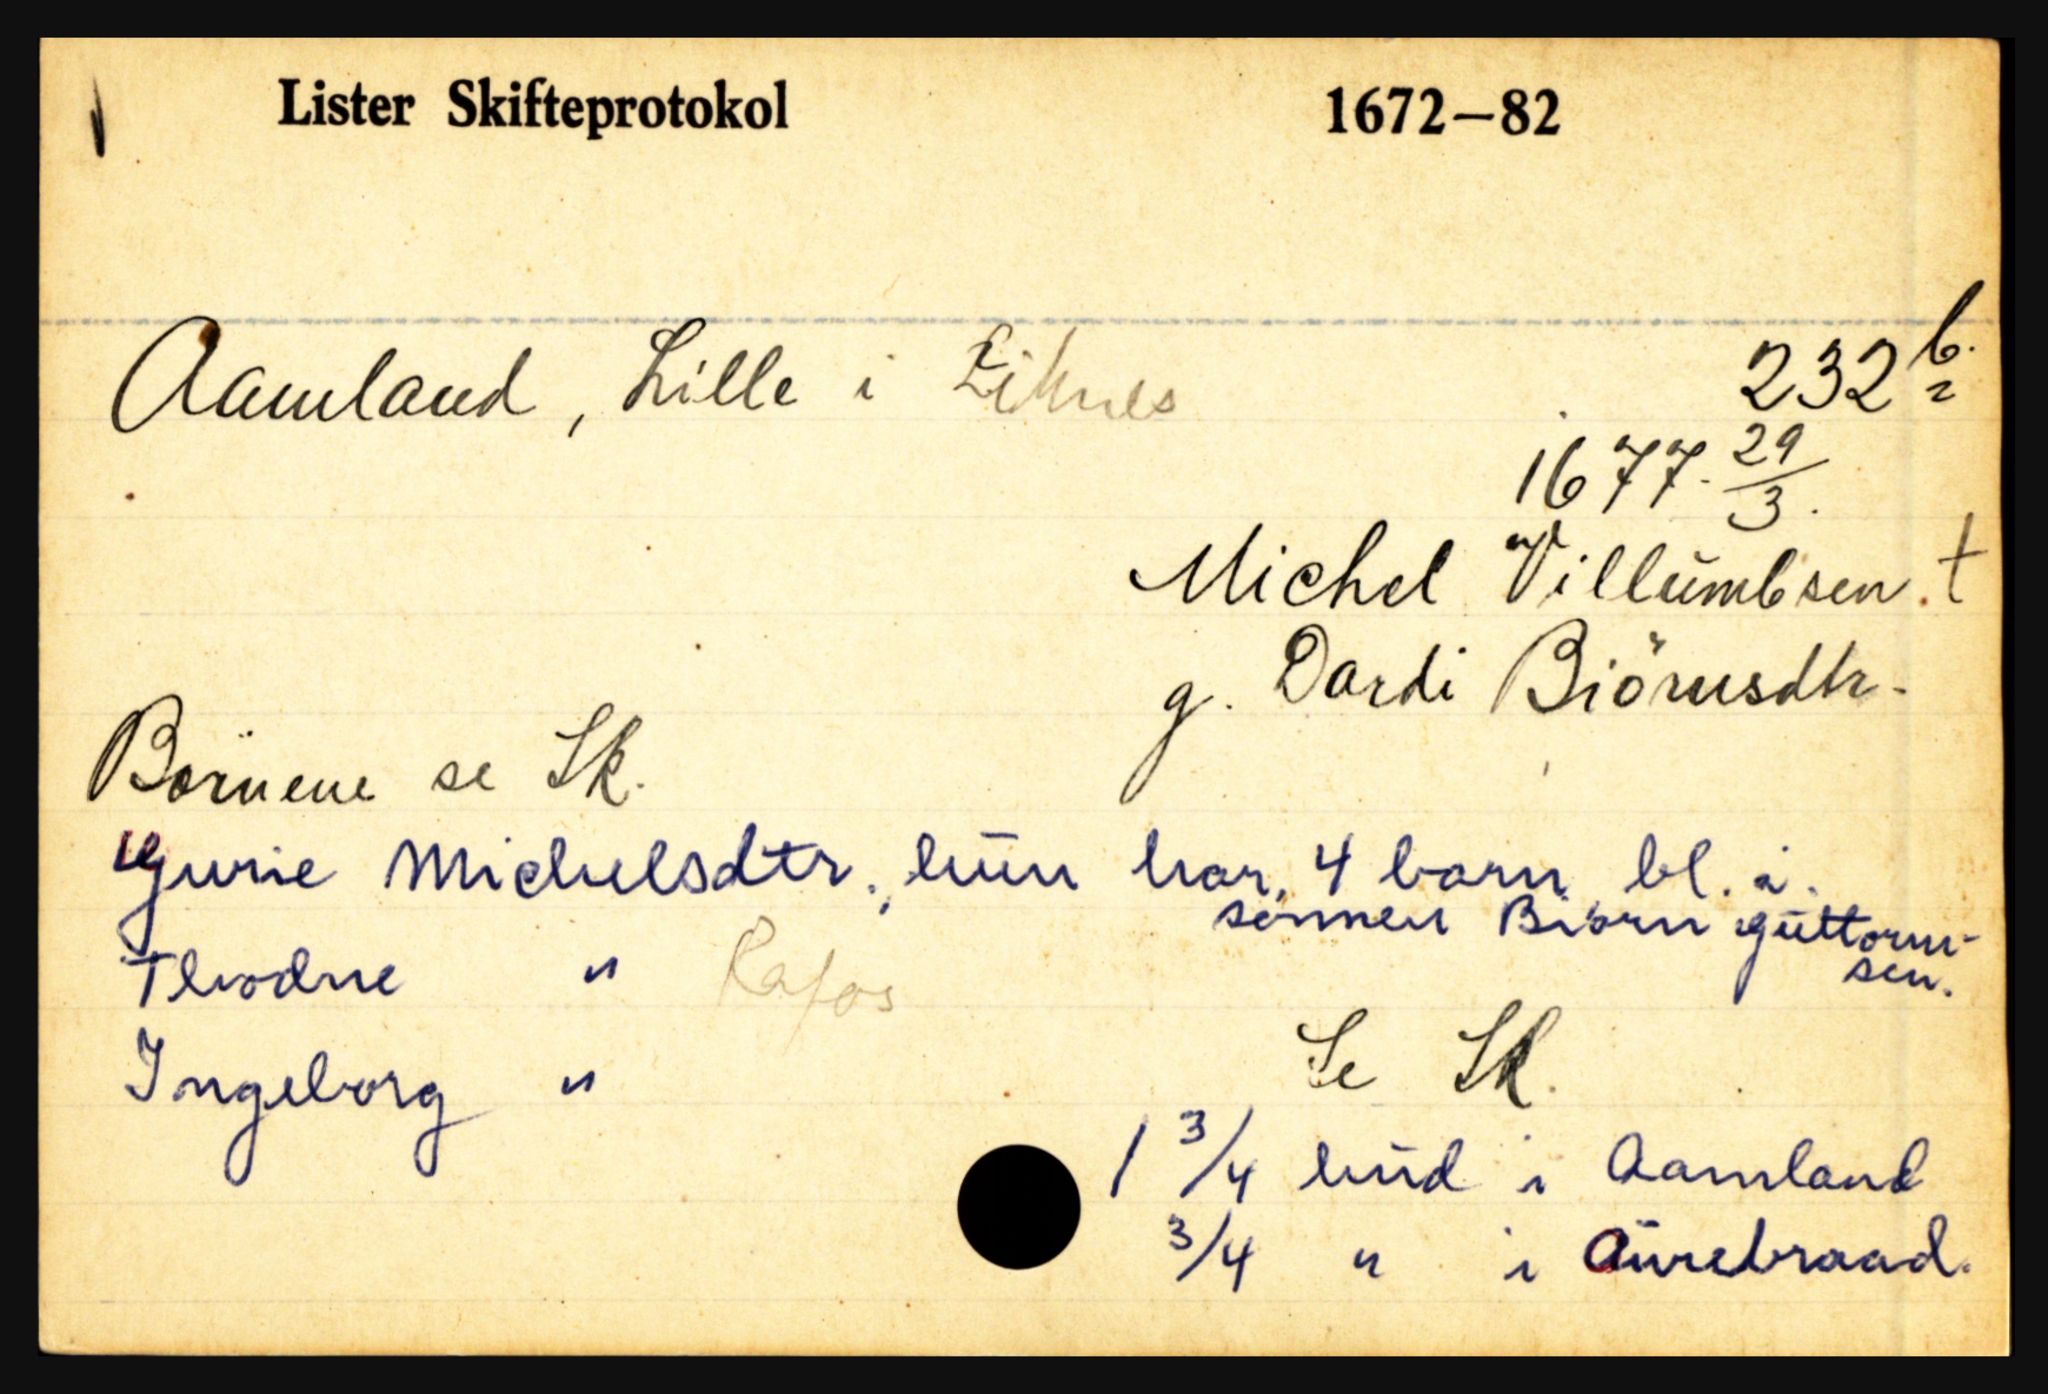 Lister Skifteprotokol 1672—82
Aamland, Lille i Eiknes 232 b.
1677. 29/3.
Michel Villumbsen. †
g. Dordi Biörnsdtr.
Börnene se Sk.
Gurie Michelsdtr., hun har 4 born bl. a.
sönnen Biörn Guttorm-
sen.
Thodne " Rafos
Ingeborg "
Se Sk.
1 3/4 hud i Aamland
3/4 " i Aurebraad.